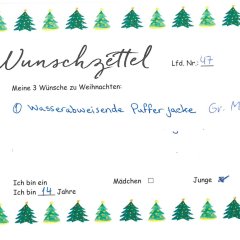 Wunschzettel Lfd. Nr.: 47
Meine 3 Wünsche zu Weihnachten:
① Wasserabweisende Puffer jacke Gr. M
Ich bin ein Mädchen ☐ Junge ☒
Ich bin 14 Jahre